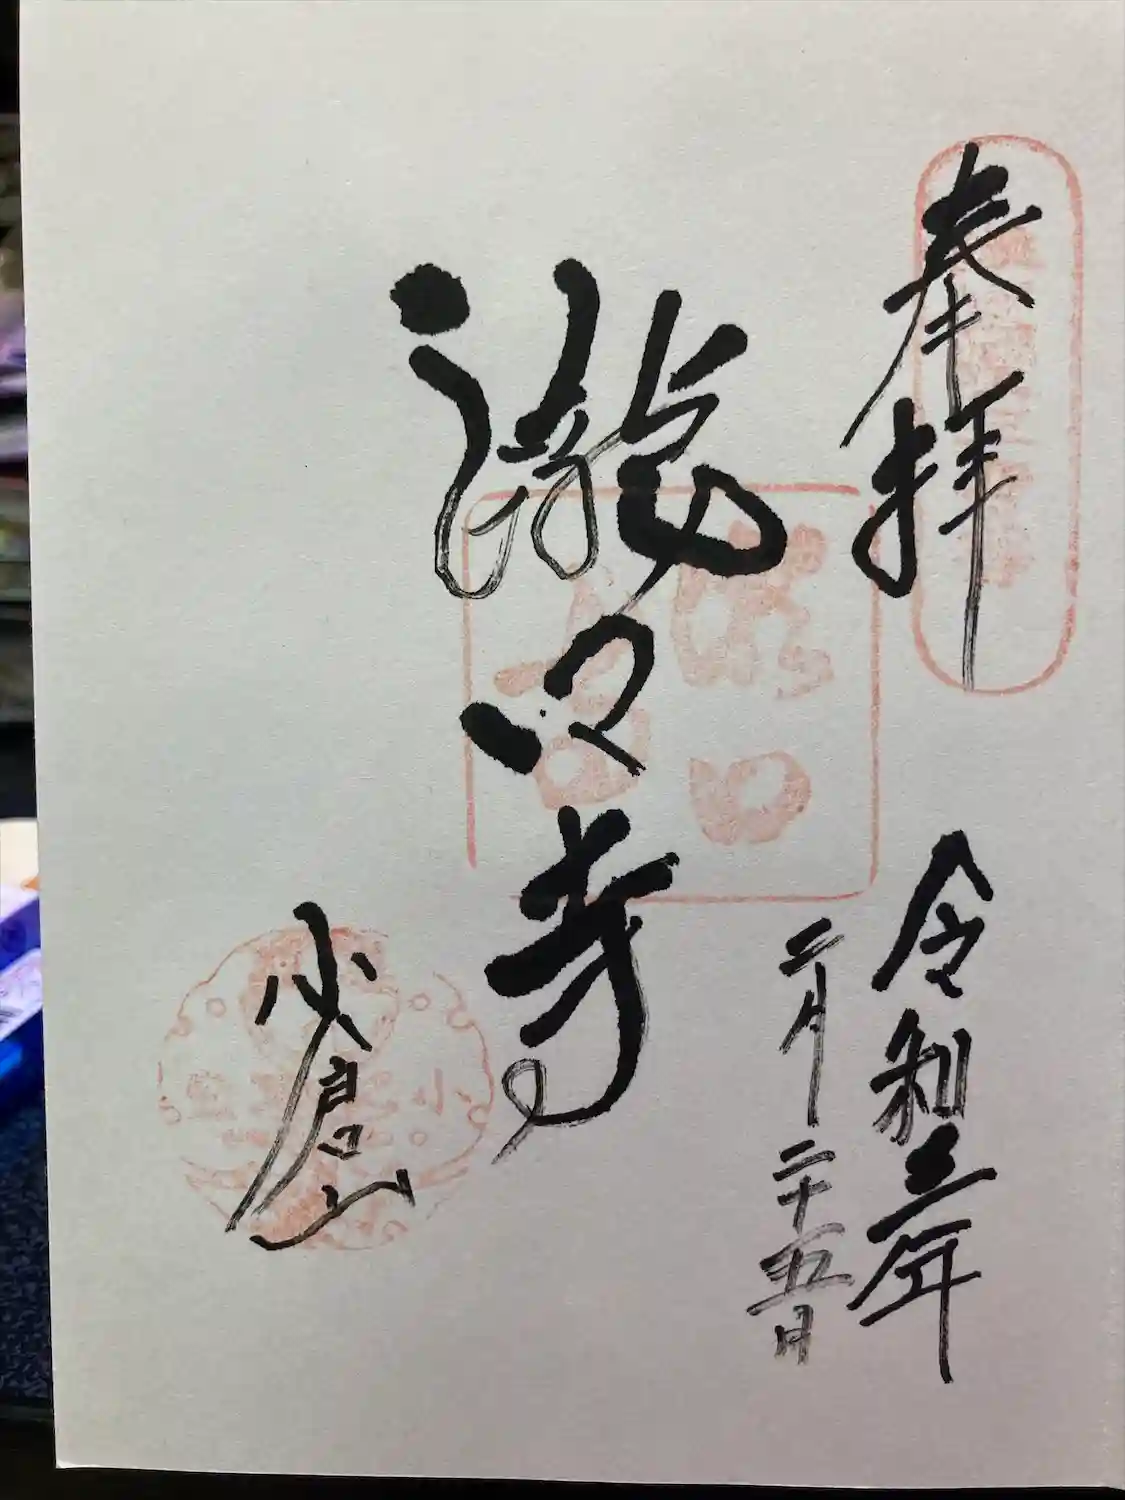 奉拝
令和三年
二月二十五日
瀧口寺
小倉山